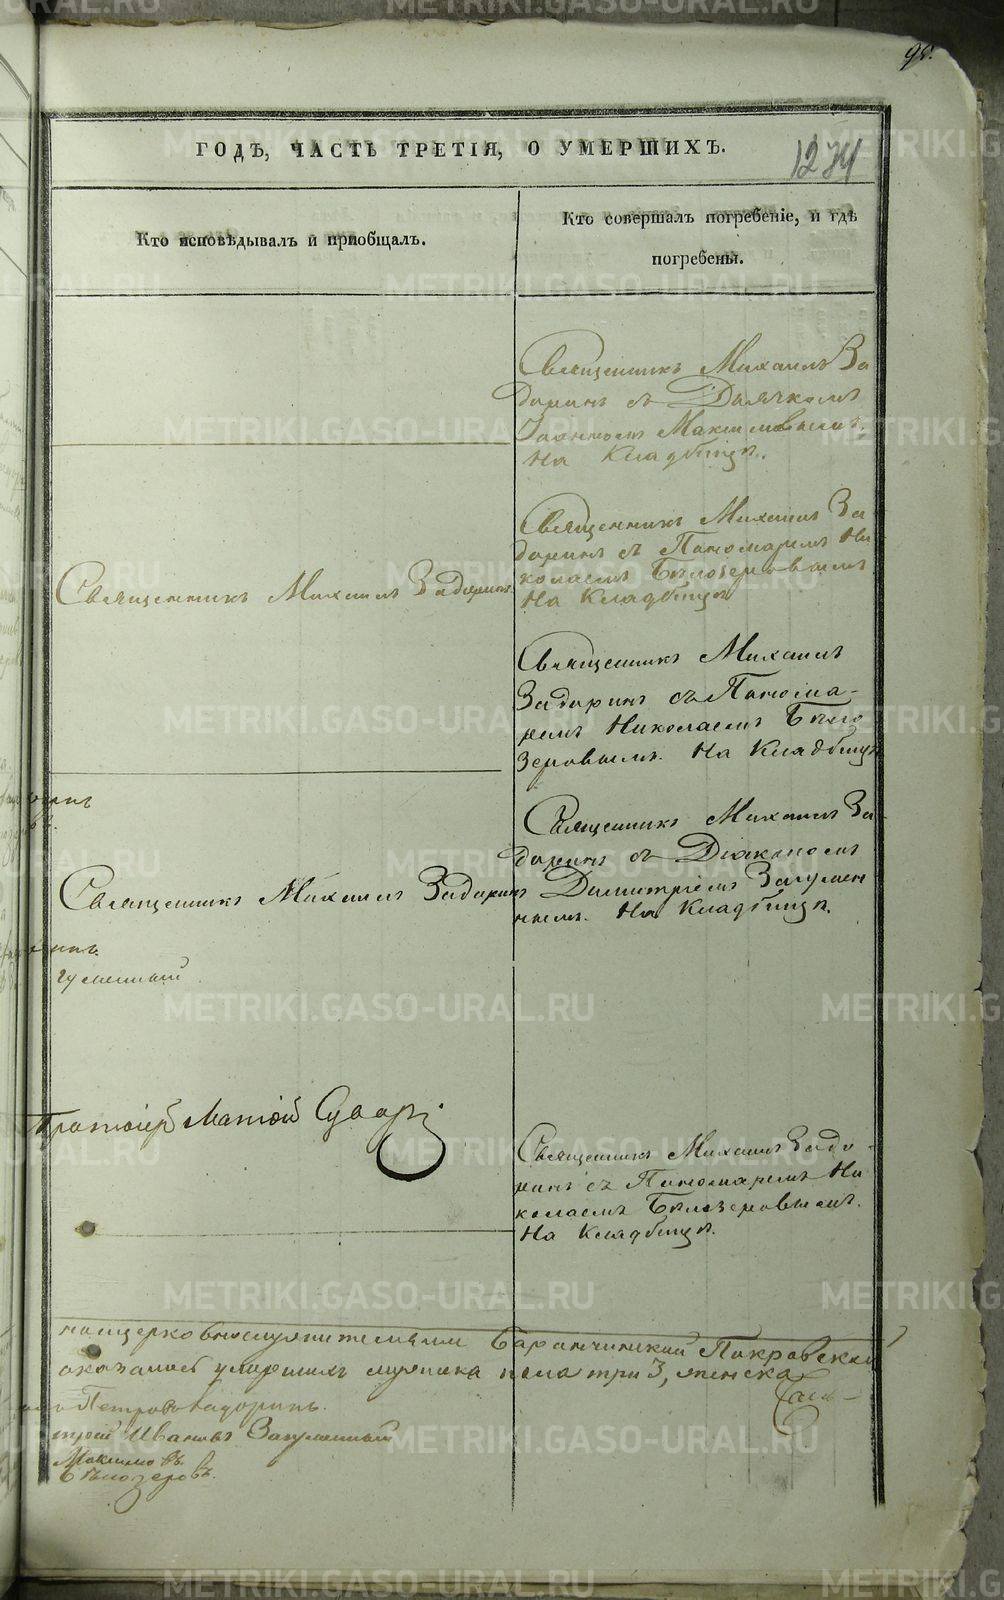 95.
ГОДЪ, ЧАСТЬ ТРЕТІЯ, О УМЕРШИХЪ.
1274
Кто исповѣдывалъ и пріобщалъ.
Кто совершалъ погребеніе, и гдѣ
погребены.
Священникъ Михаилъ За
доринъ съ Дьячкомъ
Максимовымъ.
На Кладбищѣ.
Священникъ Михаилъ Задоринъ
Священникъ Михаилъ За
доринъ съ Пономаремъ Ни
колаемъ Бѣлозеровымъ
На Кладбищѣ
Священникъ Михаилъ
Задоринъ съ Понома-
ремъ Николаемъ Бѣло
зеровымъ. На Кладбищѣ
Священникъ Михаилъ Задоринъ
Священникъ Михаилъ За-
доринъ съ Діакономъ
Димитріемъ Загумен
нымъ. На Кладбищѣ.
гуменный
Протоіерей
Священникъ Михаилъ Задо-
ринъ съ Пономаремъ Ни
колаемъ Бѣлозеровымъ.
На Кладбищѣ.
нощерковнослужителями Баранчинской Покровской
оказалось умершихъ мужска пола три 3, женска
Петровъ Задоринъ.
трій Ивановъ Загуменный
Максимовъ.
Бѣлозеровъ.
METRIKI.GASO-URAL.RU